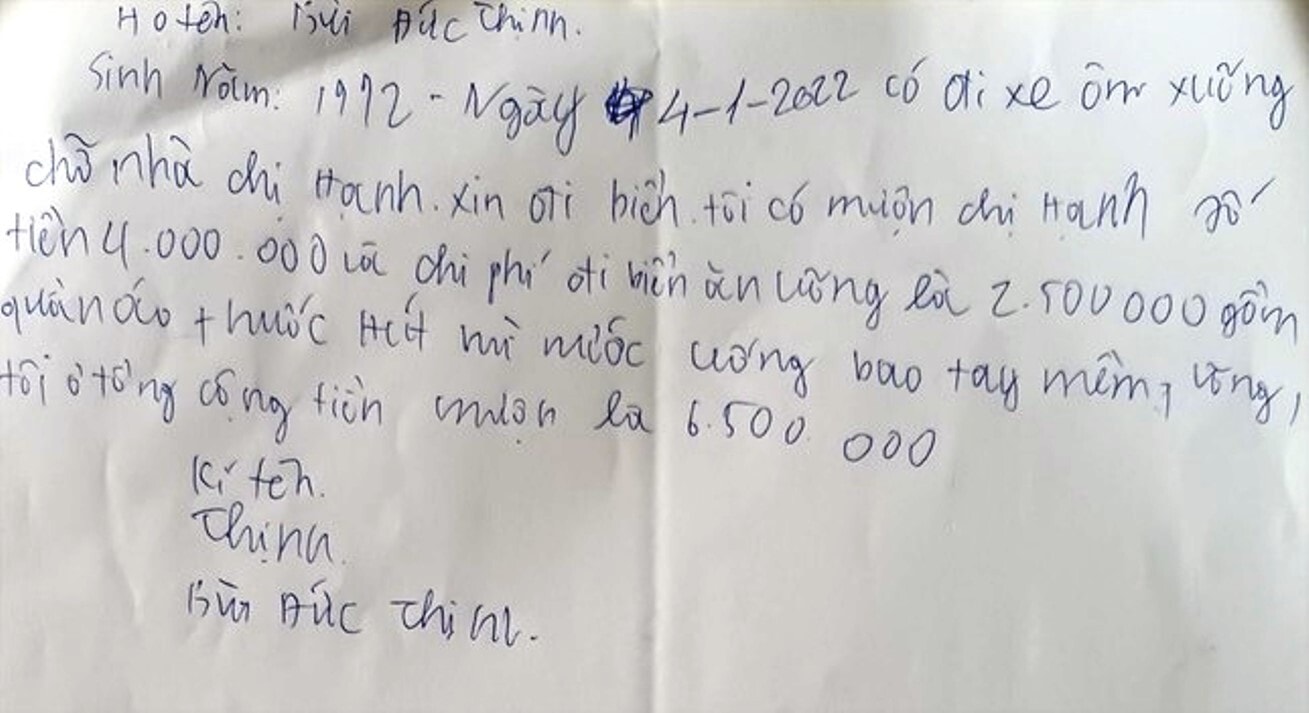 Họ tên: Bùi Đức Thịnh.
Sinh Năm: 1972 - Ngày 4-1-2022 có đi xe ôm xuống
chỗ nhà chị Hạnh. xin đi biển. tôi có mượn chị Hạnh số
tiền 4.000.000 và chi phí đi biển ăn uống là 2.500 000 gồm
quần áo + thuốc Hút mì nước uống bao tay mềm, võng,
tôi ở tổng cộng tiền mượn là 6.500 000
Kí tên.
Thịnh.
Bùi Đức Thịnh.